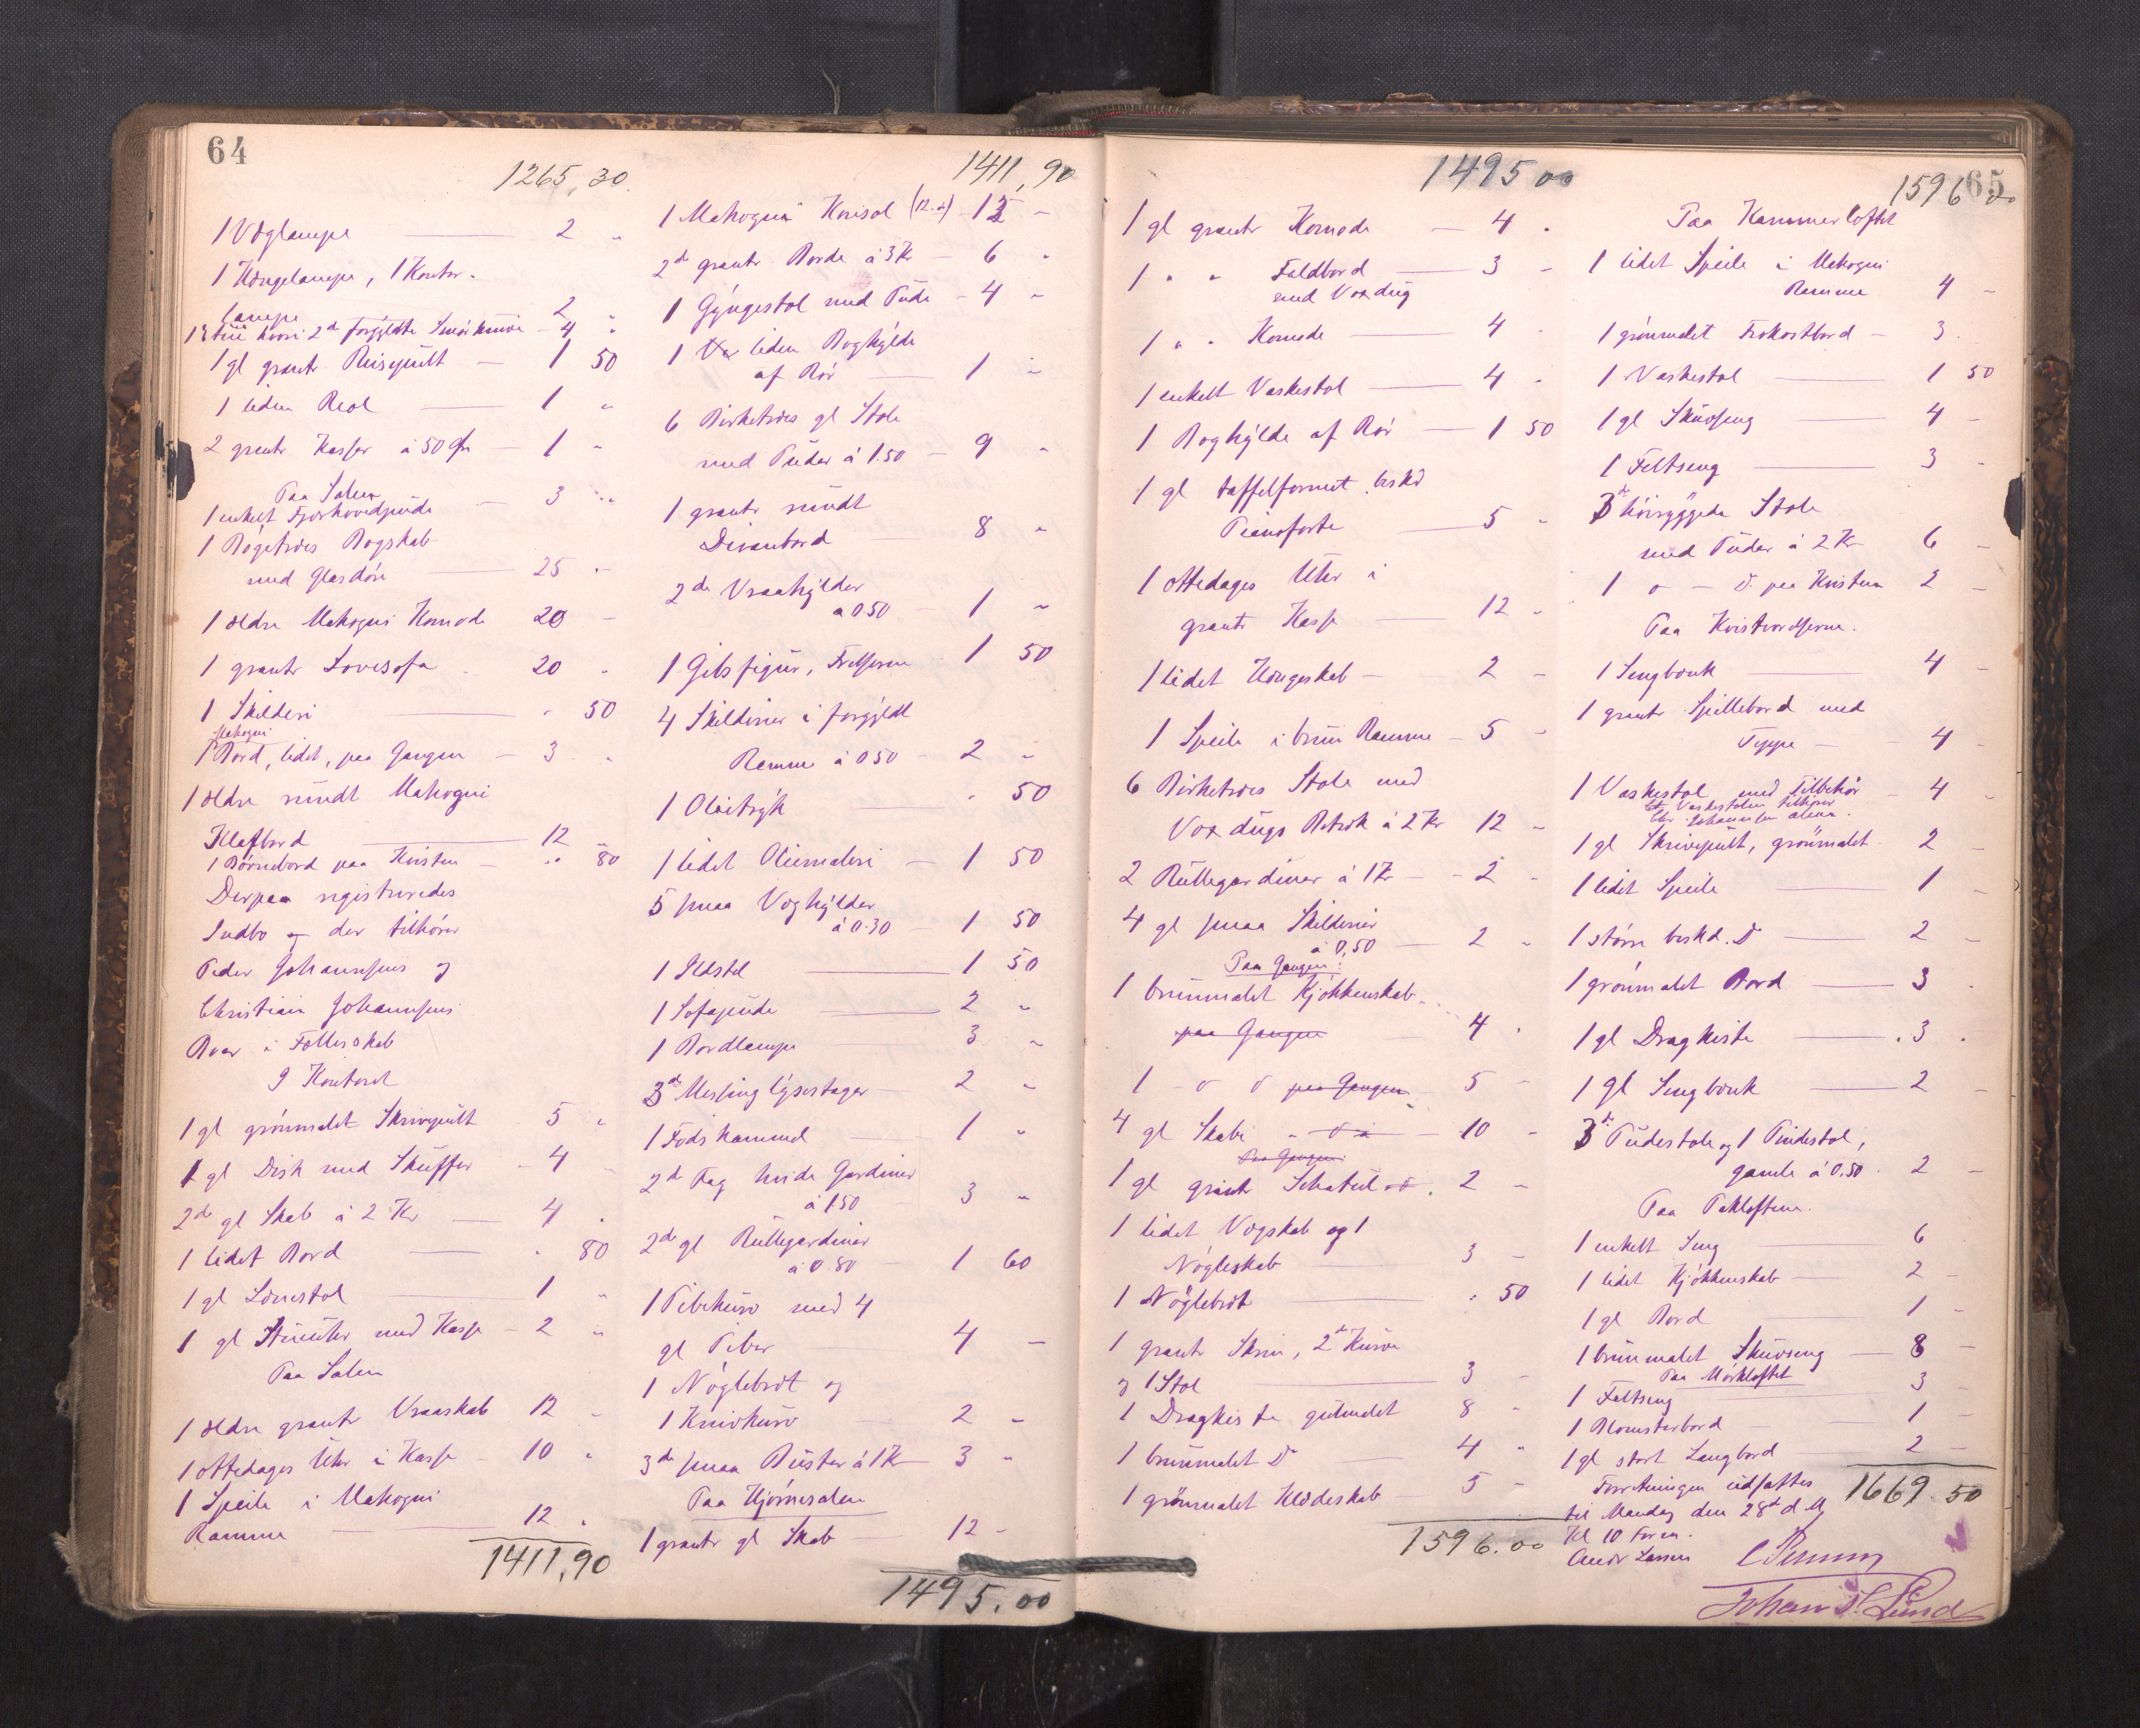 64
1265,30
1 Væglampe — 2 "
1 Hængelampe, 1 Kontor-
lampe 2 "
2de forgyldte — 4 "
1 gl grantr. Reisepult — 1 50
1 liden Reol — 1 "
2 grantr Kasser à 50 Øre — 1 "
Paa Salen
1 enkelt Fjærhovedpude — 3 "
1 Bøgetræes Bogskab
med Glasdøre — 25 "
1 ældre Mahogni Komode 20 —
1 grantr Sovesofa 20 "
1 Skilderi — " 50
Mahogni
1 Bord, lidet, paa Gangen — 3 "
1 ældre rundt Mahogni
Klafbord — 12
1 Børnebord paa Kvisten — " 80
Derpaa registreredes
Indbo og der tilhører
Peder Johannsens og
Christian Johannsens
Boer i Fællesskab
I Kontoret
1 gl grønmalet Skrivepult 5 "
1 gl Disk med Skuffer 4 "
2de gl Skab à 2 Kr — 4 "
1 lidet Bord — " 80
1 gl Lænestol — 1 "
1 gl Stueuhr med Kasse — 2 "
Paa Salen
1 ældre grantr Vraaskab 12 "
1 ottedages Uhr i Kasse — 10 "
1 Speile i Mahogni
Ramme — 12 "
1411,90
1411,90
1 Mahogni Konsol (12.-) — 12 —
2de grantr. Borde à 3 Kr — 6 "
1 Gyngestol med Pude — 4 "
1 liden Boghylde
af Rør — 1 "
6 Birketræes gl Stole
med Puder à 1.50 — 9 "
1 grantr rundt
Divanbord — 8 "
2de Vraahylder
a 0.50 — 1 "
1 Gibsfigur, Frelseren 1 50
4 Skilderier i forgyldt
Ramme à 0.50 — 2 "
1 Olietryk — " 50
1 lidet Oliemaleri — 1 50
5 smaa Væghylder
à 0.30 — 1 50
1 Ildstel — 1 50
1 Sofapude — 2 "
1 Bordlampe 3 "
3de Messinglysestager — 2 "
1 Fodskammel — 1 "
2de Fag hvide Gardiner
à 1.50 3 "
2de gl Rullegardiner
à 0.80 — 1 60
1 Pibekurv med 4
gl Piber — 4 —
1 Nøglebræt og
1 Knivkurv 2 —
3de smaa Buster à 1 Kr — 3 "
Paa Hjørnesalen
1 grantr gl Skab 12 —
1495.00
65
1495 00
1 gl grantr Komode — 4 "
1 " " Foldbord — 3 —
med Voxdug
1 " " Komode — 4 "
1 enkelt Vaskestol — 4 "
1 Boghylde af Rør — 1 50
1 gl taffelformet besk.
Pianoforte — 5 "
1 ottedages Uhr i
grantr Kasse — 12 —
1 lidet Hængeskab — 2 —
1 Speile i brun Ramme — 5 —
6 Birketræes Stole med
Voxdugs Betræk à 2 Kr 12 —
2 Rullegardiner à 1 Kr — 2 "
4 gl smaa Skilderier
à 0,50 — 2 "
Paa Gangen:
1 brunmalet Kjøkkenskab
paa Gangen 4 "
1 — o o paa Gangen 5 —
4 gl Skabe — 10 —
Paa Gangen
1 gl grantr Schatul 2 —
1 lidet Vægskab og 1
Nøgleskab — 3 —
1 Nøglebræt — " 50
1 grantr Skrin, 2de Kurve
og 1 Stol — 3 —
1 Dragkiste gulmalet 8 "
1 brunmalet Do — 4 "
1 grønmalet Klædeskab — 5 —
1596.00
1596 00
Paa Kammerloftet
1 lidet Speile i Mahogni
Ramme 4 —
1 grønmalet Frokostbord — 3 "
1 Vaskestol — 1 50
1 gl Skuvseng — 4 —
1 Feltseng — 3 "
3de høiryggede Stole
med Puder à 2 Kr 6 —
1 o — Do paa Kvisten 2 —
Paa Kvistværelserne.
1 Sengbænk — 4 —
1 grantr Spillebord med
Teppe — 4 —
1 Vaskestol med Tilbehør — 4 "
Vaskestolen tilhører
Chr. Johannsen alene.
1 gl Skrivepult, grønmalet 2 —
1 lidet Speile — 1 —
1 større beskd. Do — 2 —
1 grønmalet Bord — 3 "
1 gl Dragkiste — 3 "
1 gl Sengbænk — 2 —
3de Pudestole og 1 Pindestol,
gamle à 0.50 2 —
Paa Takloftene.
1 enkelt Seng — 6
1 lidet Kjøkkenskab — 2 —
1 gl Bord — 1 —
1 brunmalet Skuvseng — 8 —
Paa Mørkloftet
1 Feltseng 3 —
1 Blomsterbord — 1 —
1 gl stort Langbord — 2 —
Forretningen udsattes 1669.50
til Mandag den 28de d M
Kl 10 Form.
Andr Larsen
Johan Lund